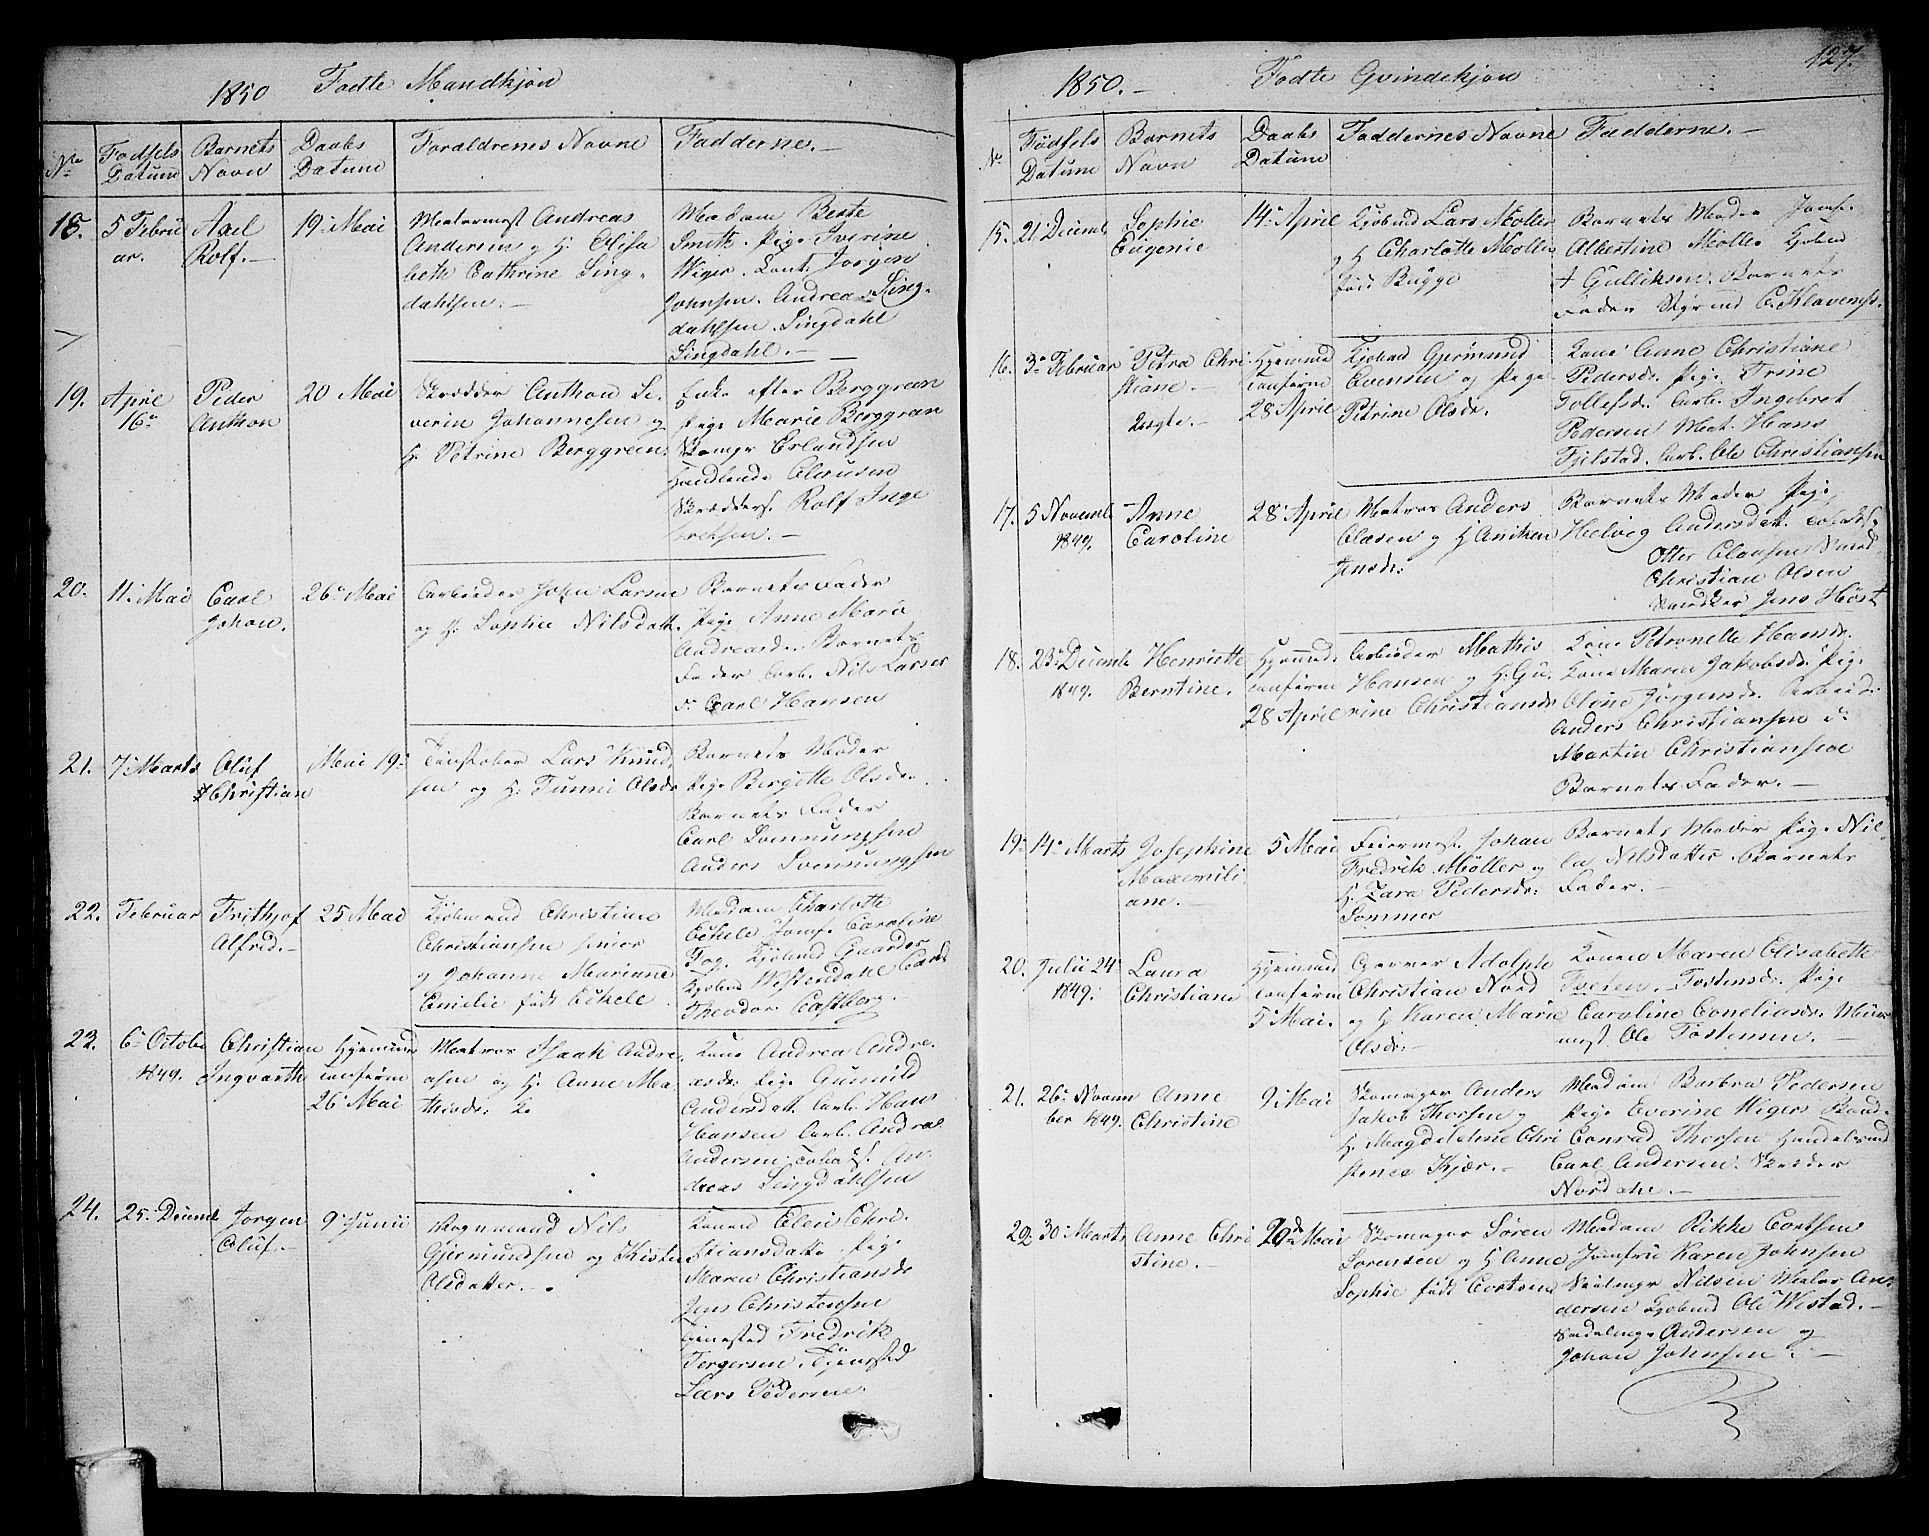 1850 Fødte Mandkjøn
No
Fødsels Datum
Barnets Navn
Daabs Datum
Forældrenes Navne
Faddérne.
18.
5 Febru
ar.
Axel
Rolf.
19 Mai
Andreas
Andersen og H. Elisa
beth Cathrine Ling
dahlsen.
Madam Beate
Smith. Pige Iverine
Wiger. Jørgen
Johnsen. Andreas Ling
dahlsen. Lingdahl
Lingdahl.
19.
April
16
Peder
Anthon
20 Mai
Skrædder Anthon Se
verin Johannesen og
H. Petrine Berggreen
Enke efter Berggreen
Pige Marie Berggran
Skomgr Erlandsen
Handlende Clausen
Skrædders. Rolf Inge
bretsen.
20.
11. Mai
Carl
Johan.
26 Mai
Arbeider John Larsen
og H. Sophie Nilsdatt.
Barnets Fader
Pige Anne Marie
Andreasd. Barnets
Fader Arb. Nils Larsen
d. Carl Hansen
21.
7 Marts
Oluf
Christian
Mai 19
Lars Knud
sen og H. Olsdr
Barnets Moder
Pige Bergitte Olsdr
Barnets Fader
Carl
Anders Svenningsen
22.
Februar
Frithjof
Alfred.
25 Mai
Kjøbmand Christian
Christiansen senior
og Johanne Mariane
Emilie født Eckele
Madam Charlotte
Eckele Jomf. Caroline
Fog. Kjøbmd
Kjøbmd Westendahl Carl
Theodor Castberg.
23.
6 October
1849.
Christian
Ingvarth
Hjemme
confirm
26 Mai
Matros Isaak Andre
asen og H. Anne Ma
thisd.
Kone Andrea Andre
asd. Pige Gunild
Andersdatt. Arb. Hans
Hansen Arb. Andreas
Andersen. An
dreas Lingdahlsen
24.
25 Decemb
Jørgen
Oluf.
9 Junii
Nils
Gjermundsen og Kirsten
Olsdatter.
Konen Elen Chri
stiansdatte. Pige
Maren Christiansdr
Jens Christensen
Fredrik
Tergersen. Tjenested
Lars Pedersen.
127.
1850. Fødte Qvindekjøn
No
Fødsels Datum
Barnets Navn
Daabs Datum
Faddernes Navne
Faddérne.
15.
21 Decemb
Sophie
Eugenie
14 April
Kjøbmd Lars Møller
og H Charlotte Møller
født Bugge
Barnets Moder Jomf.
Albertine Møller Kjøbmd
A Gulliksen. Barnets
Fader Styrmd C. Klavenes.
16.
3 Februar
Petra Chri
stiane.
Uægte.
Hjemme
confirm
28 April
Gjermund
Evensen og Pige
Petrine Olsdr.
Kone Anne Christiane
Pedersd. Pige Trine
Tollefsd. Arb. Ingebret
Pedersen Mat. Hans
Fjelstad. Arb. Ole Christiansen
17.
5 Novemb
1849.
Anne
Caroline
28 April
Matros Anders
Olasen og H Aniken
Jensdr.
Barnets Moder Pige
Helvig Andersdatt.
Otter Clausen
Christian Olsen
Jens Høst
18.
23 Decemb
1849.
Henriette
Berntine.
Hjemmed
confirm
28 April
Arbeider Mathis
Hansen og H. Gu
rine Christiansdr
Kone Petronelle Hansdr.
Kone Maren Jakobsdr. Pige
Oline Jørgensdr. Arbeider
Anders Christiansen
Martin Christiansen
Barnets Fader.
19.
14 Marts
Josephine
Maxemili
ane.
5 Mai
Feiermest. Johan
Fredrik Møller og
H. Zara Pedersdr.
Sommer
Barnets Moder Pige Nil
la Nilsdatter Barnets
Fader.
20.
Julii 24
1849.
Laura
Christiane
Hjemmed
confirm
5 Mai.
Garver Adolph
Christian Nord
og H Karen Marie
Olsdr.
Konen Maren Elisabette
Tveten. Tostensd. Pige
Caroline Corneliasdr. Muur
mest. Ole Tostensen.
21.
26 Novem
ber 1849.
Anne
Christine
9 Mai
Skomager Anders
Jakob Thorsen og
H. Magdelehne Chri
stence Kjær.
Madam Barbra Pedersen
Pige Everine Wigers
Conrad Thorsen Handelsmd
Carl Andersen. Skræder
Nordahl.
22.
30 Marts
Anne Chri
stine.
20de Mai
Skomager Søren
Sørensen og H Anne
Sophie født Cortsen
Madam Rikke Cortsen
Jomfru Karen Johnsen
Nilsen Maler An
dersen Kjøbmd Ole Westad.
Sadelmgr Andersen og
Johan Johnsen.